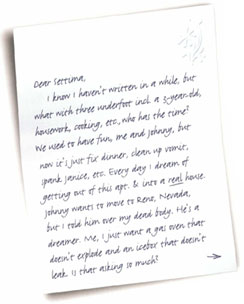 Dear Settima,
I know I haven't written in a while, but
what with three underfoot incl. a 3-year-old,
housework, cooking, etc., who has the time?
We used to have fun, me and Johnny, but
now it's just fix dinner, clean up vomit,
spank Janice, etc. Every day I dream of
getting out of this apt. & into a real house.
Johnny wants to move to Reno, Nevada,
but I told him over my dead body. He's a
dreamer. Me, I just want a gas oven that
doesn't explode and an icebox that doesn't
leak. Is that asking so much?
→